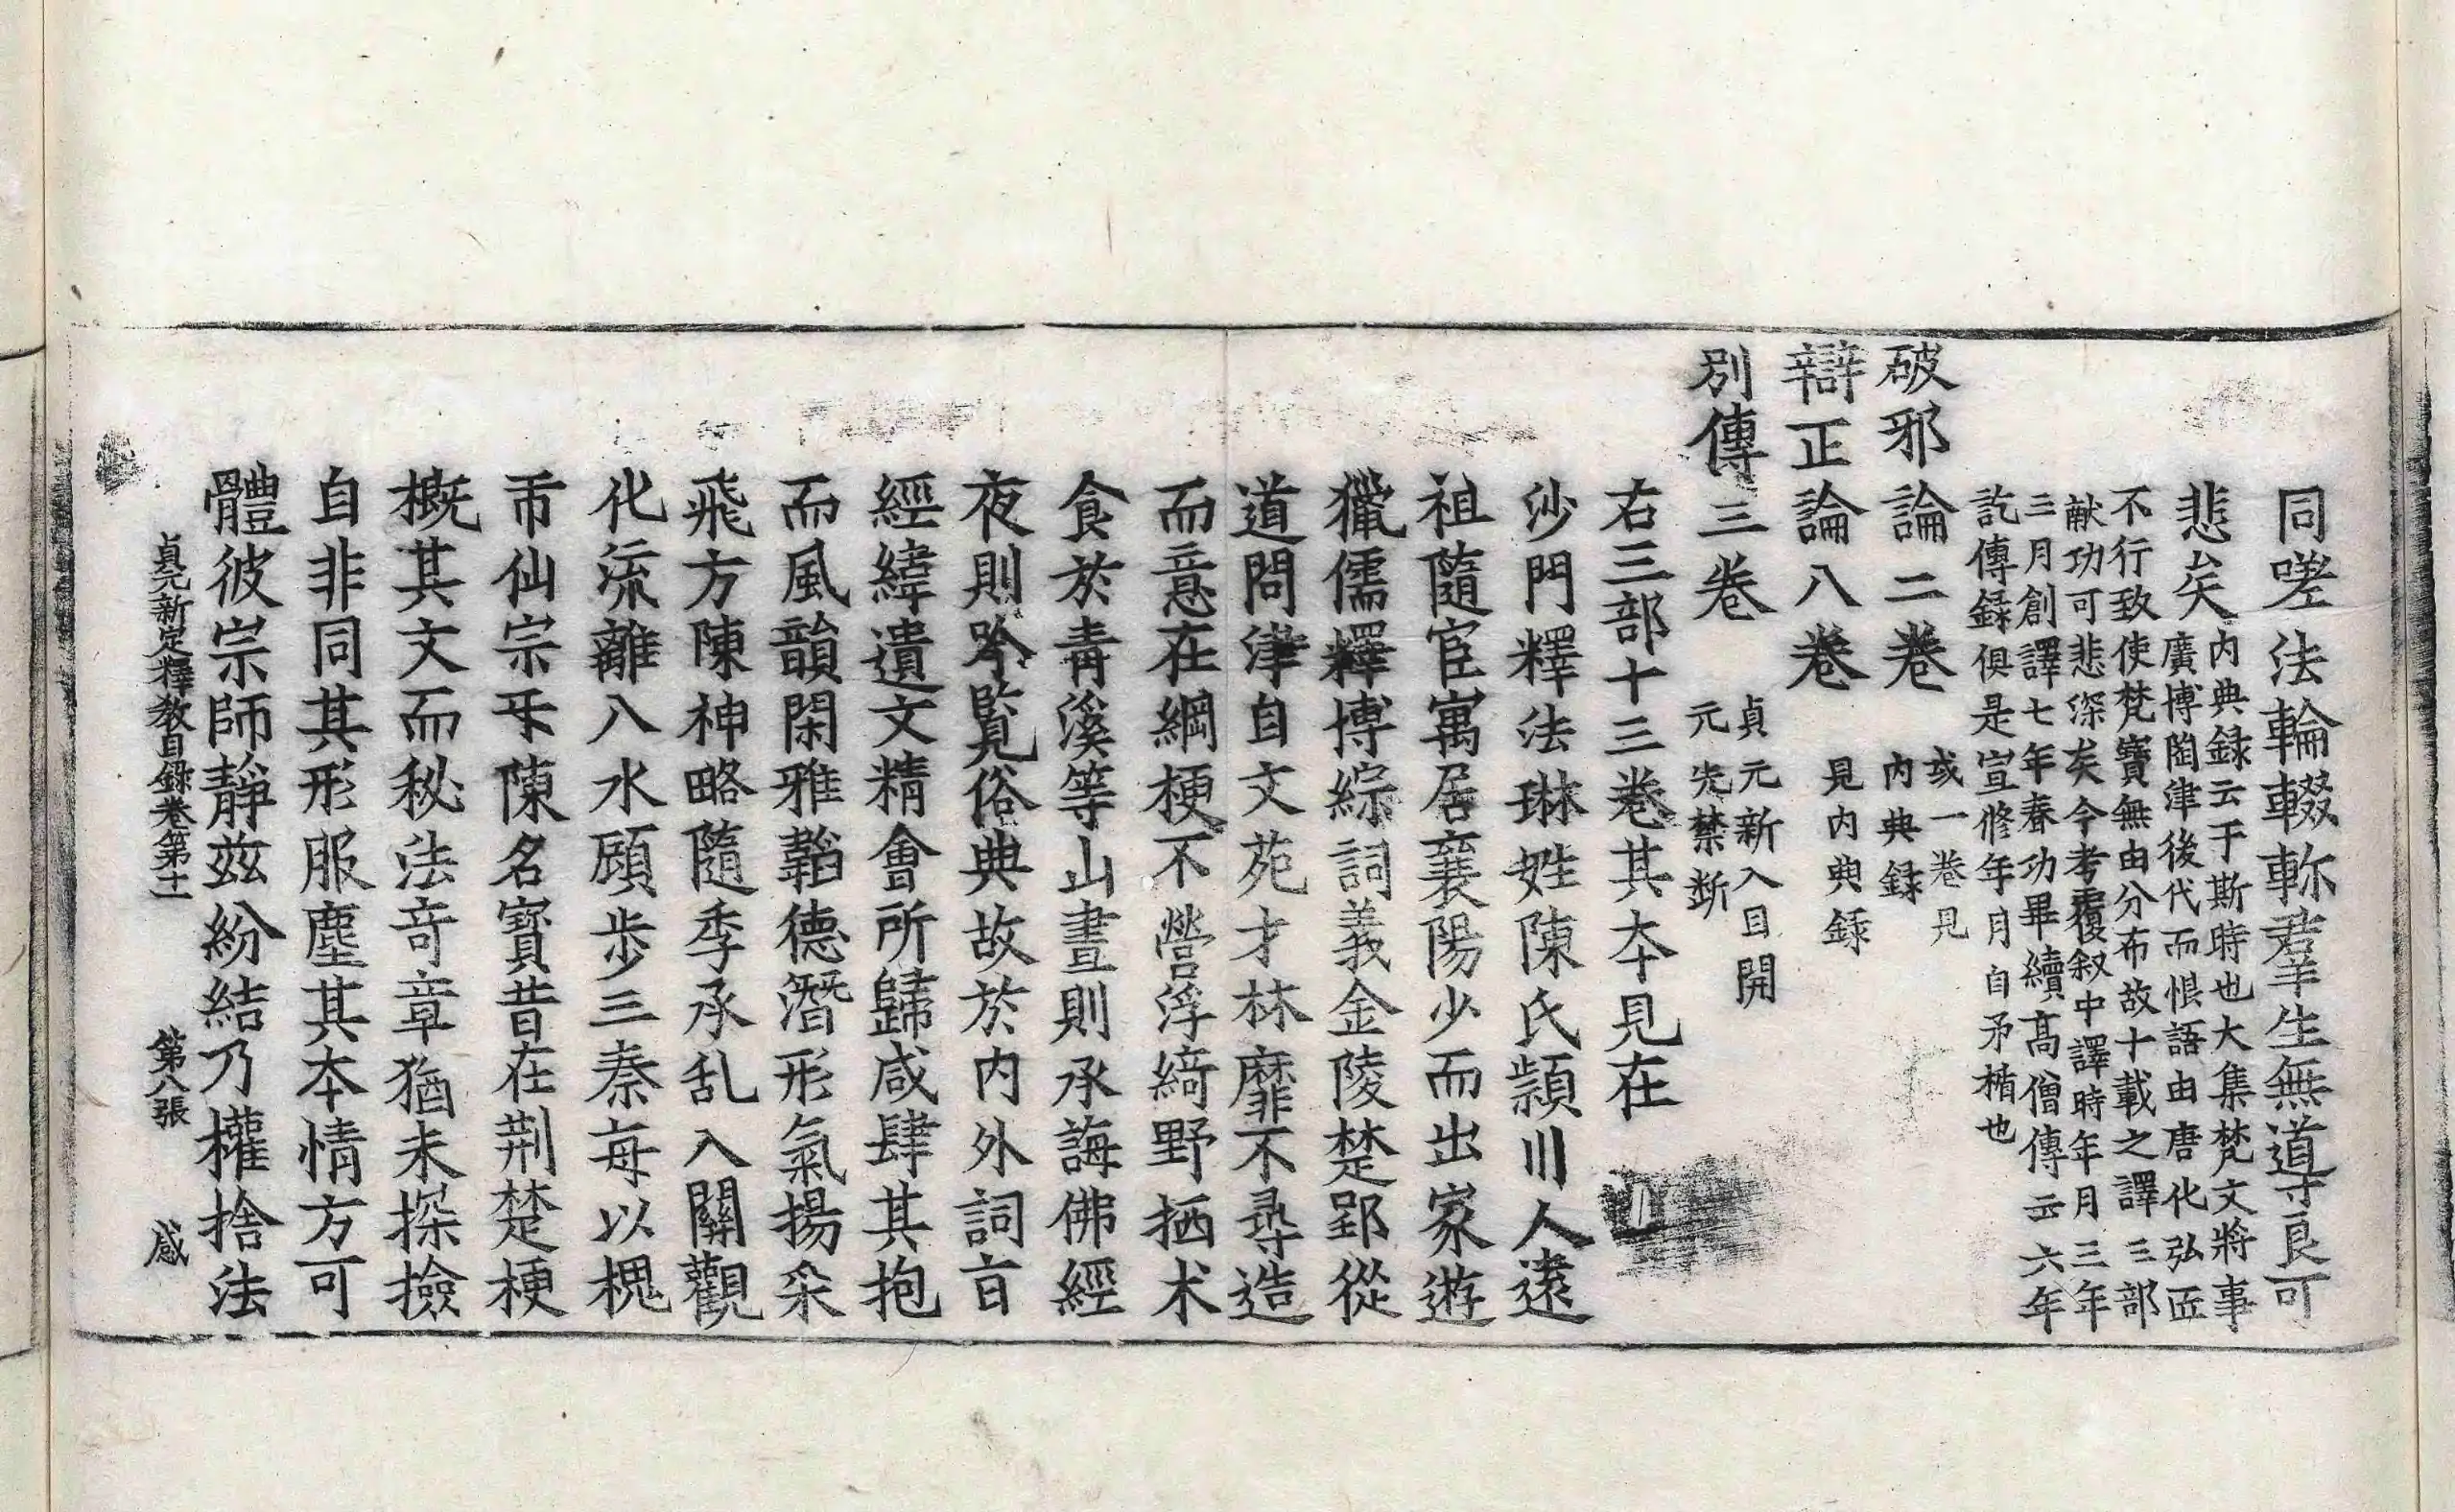 同嗟法輪輟軫羣生無導良可
悲矣內典録云于斯時也大集梵文將事
廣博闡津後代而恨語由唐化弘匠
不行致使梵寶無由分布故十載之譯三部
献功可悲深矣今考覆叙中譯時年月三年
三月創譯七年春功畢續高僧傳云六年
訖傳録俱是宣修年月自矛楯也
破邪論二卷或一卷見
內典録
辯正論八卷見內典録
別傳三卷貞元新入目開
元先禁断
右三部十三卷其夲見在
沙門釋法琳姓陳氏頴川人遠
祖隨宦寓居襄陽少而出家遊
獵儒釋博綜詞義金陵楚郢從
道問津自文苑才林靡不尋造
而意在綱梗不營浮綺野栖木
食於青溪等山晝則承誨佛經
夜則吟覧俗典故於內外詞旨
經緯遺文精會所歸咸肆其抱
而風韻閑雅韜德潛形氣揚采
飛方陳神略隨季承乱入關觀
化流離八水顧步三秦每以槐
帀仙宗㸦陳名寶昔在荆楚梗
概其文而秘法奇章猶未探撿
自非同其形服塵其夲情方可
體彼宗師靜茲紛結乃權捨法
貞元新定釋教目録卷第十一 第八張 感